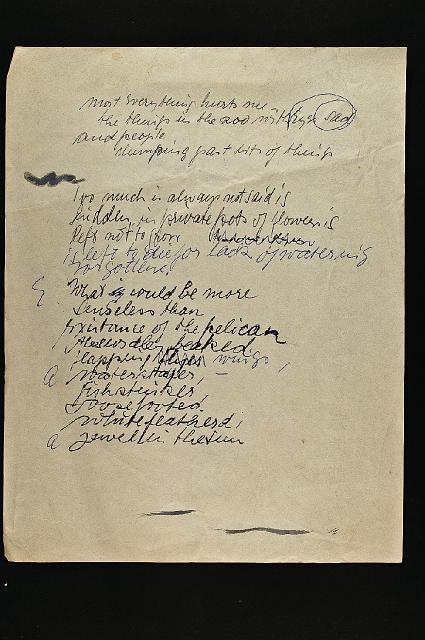 Most Everything hurts me
the things in the zoo with eyes sad
and people
dumping past bits of things
Too much is always not said is
hidden, in private pots of flowers is
left not to grow
is left to die for lack of watering
forgotten.
What would be more
senseless than
existance of the pelican
beaked
flapping wings,
a
fishstinker
goosefooted.
whitefeatherd,
a jewel in the sun